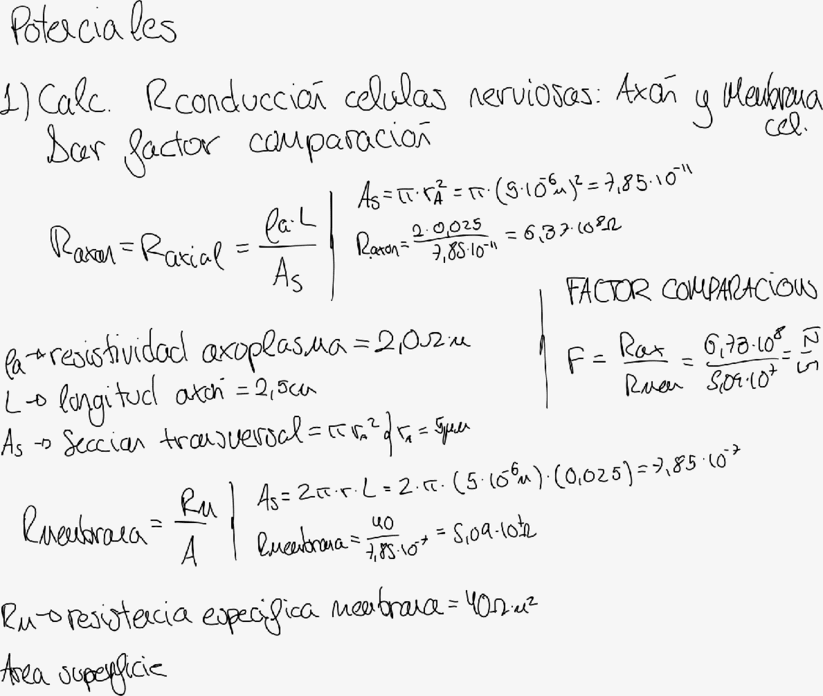 Potenciales
1) Calc. Rconducción celulas nerviosas: Axón y Membrana cel.
Dar factor comparación
Raxon = Raxial = ρa·L / As
As = π·r_A² = π·(5·10⁻⁶m)² = 7,85·10⁻¹¹
Raxon = 2·0,025 / 7,85·10⁻¹¹ = 6,37·10⁸Ω
FACTOR COMPARACIONS
F = Rax / Rmem = 6,73·10⁸ / 5,09·10⁷ =
ρa → resistividad axoplasma = 2,0Ωm
L → longitud axón = 2,5cm
As → Seccion transversal = π ra² } ra = 5μm
Rmembrana = Rm / A
As = 2π·r·L = 2·π·(5·10⁻⁶m)·(0,025) = 7,85·10⁻⁷
Rmembrana = 40 / 7,85·10⁻⁷ = 5,09·10⁷Ω
Rm → resistencia especifica membrana = 40Ω·m²
Area superficie